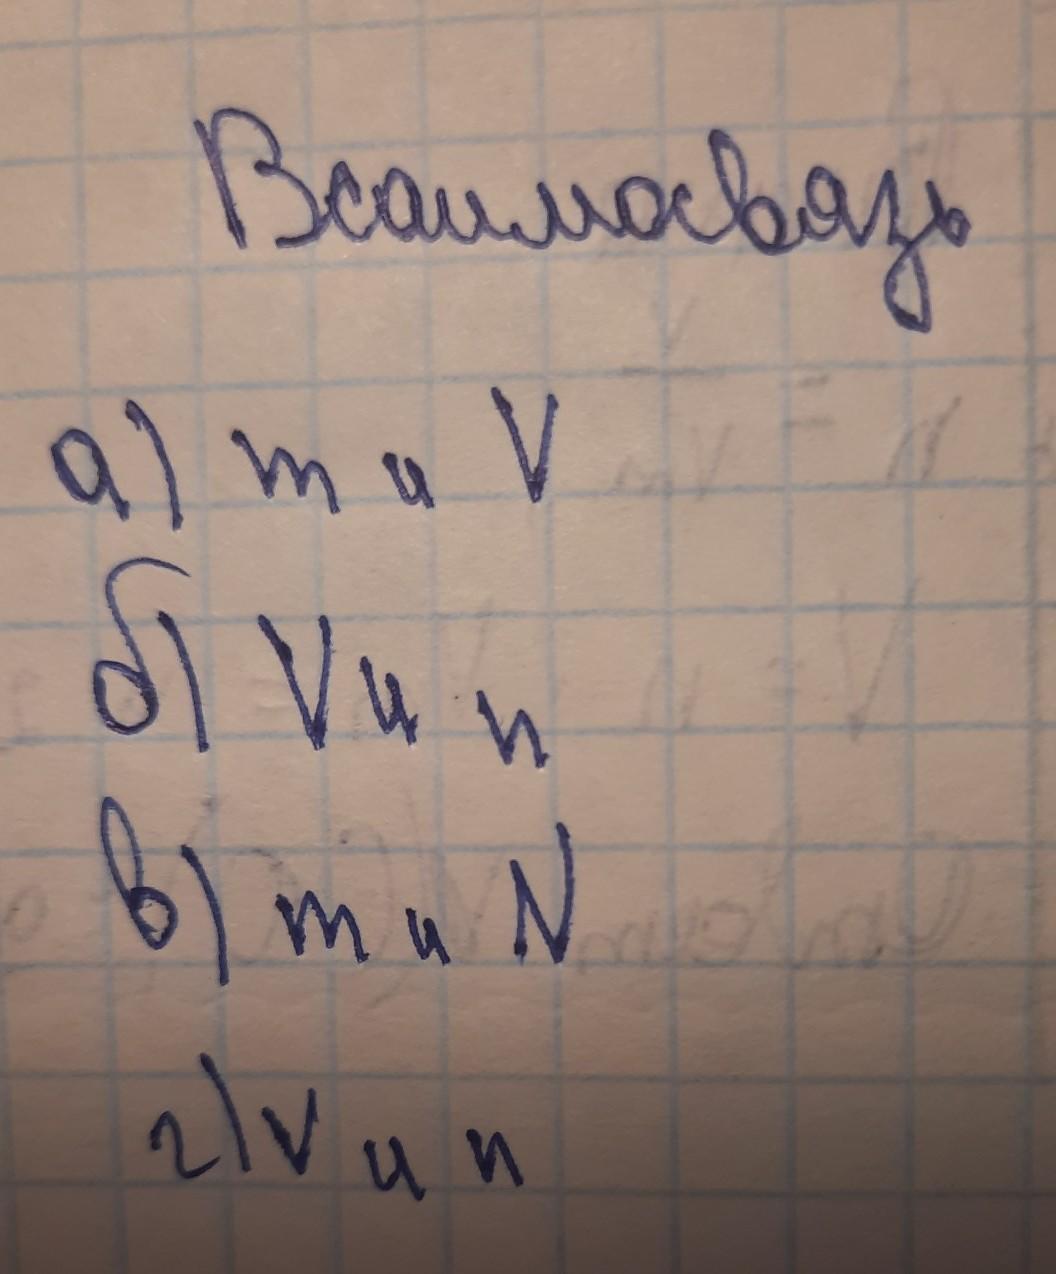 Всаимосвязь
а) m и V
б) V и n
в) m и N
г) V и n